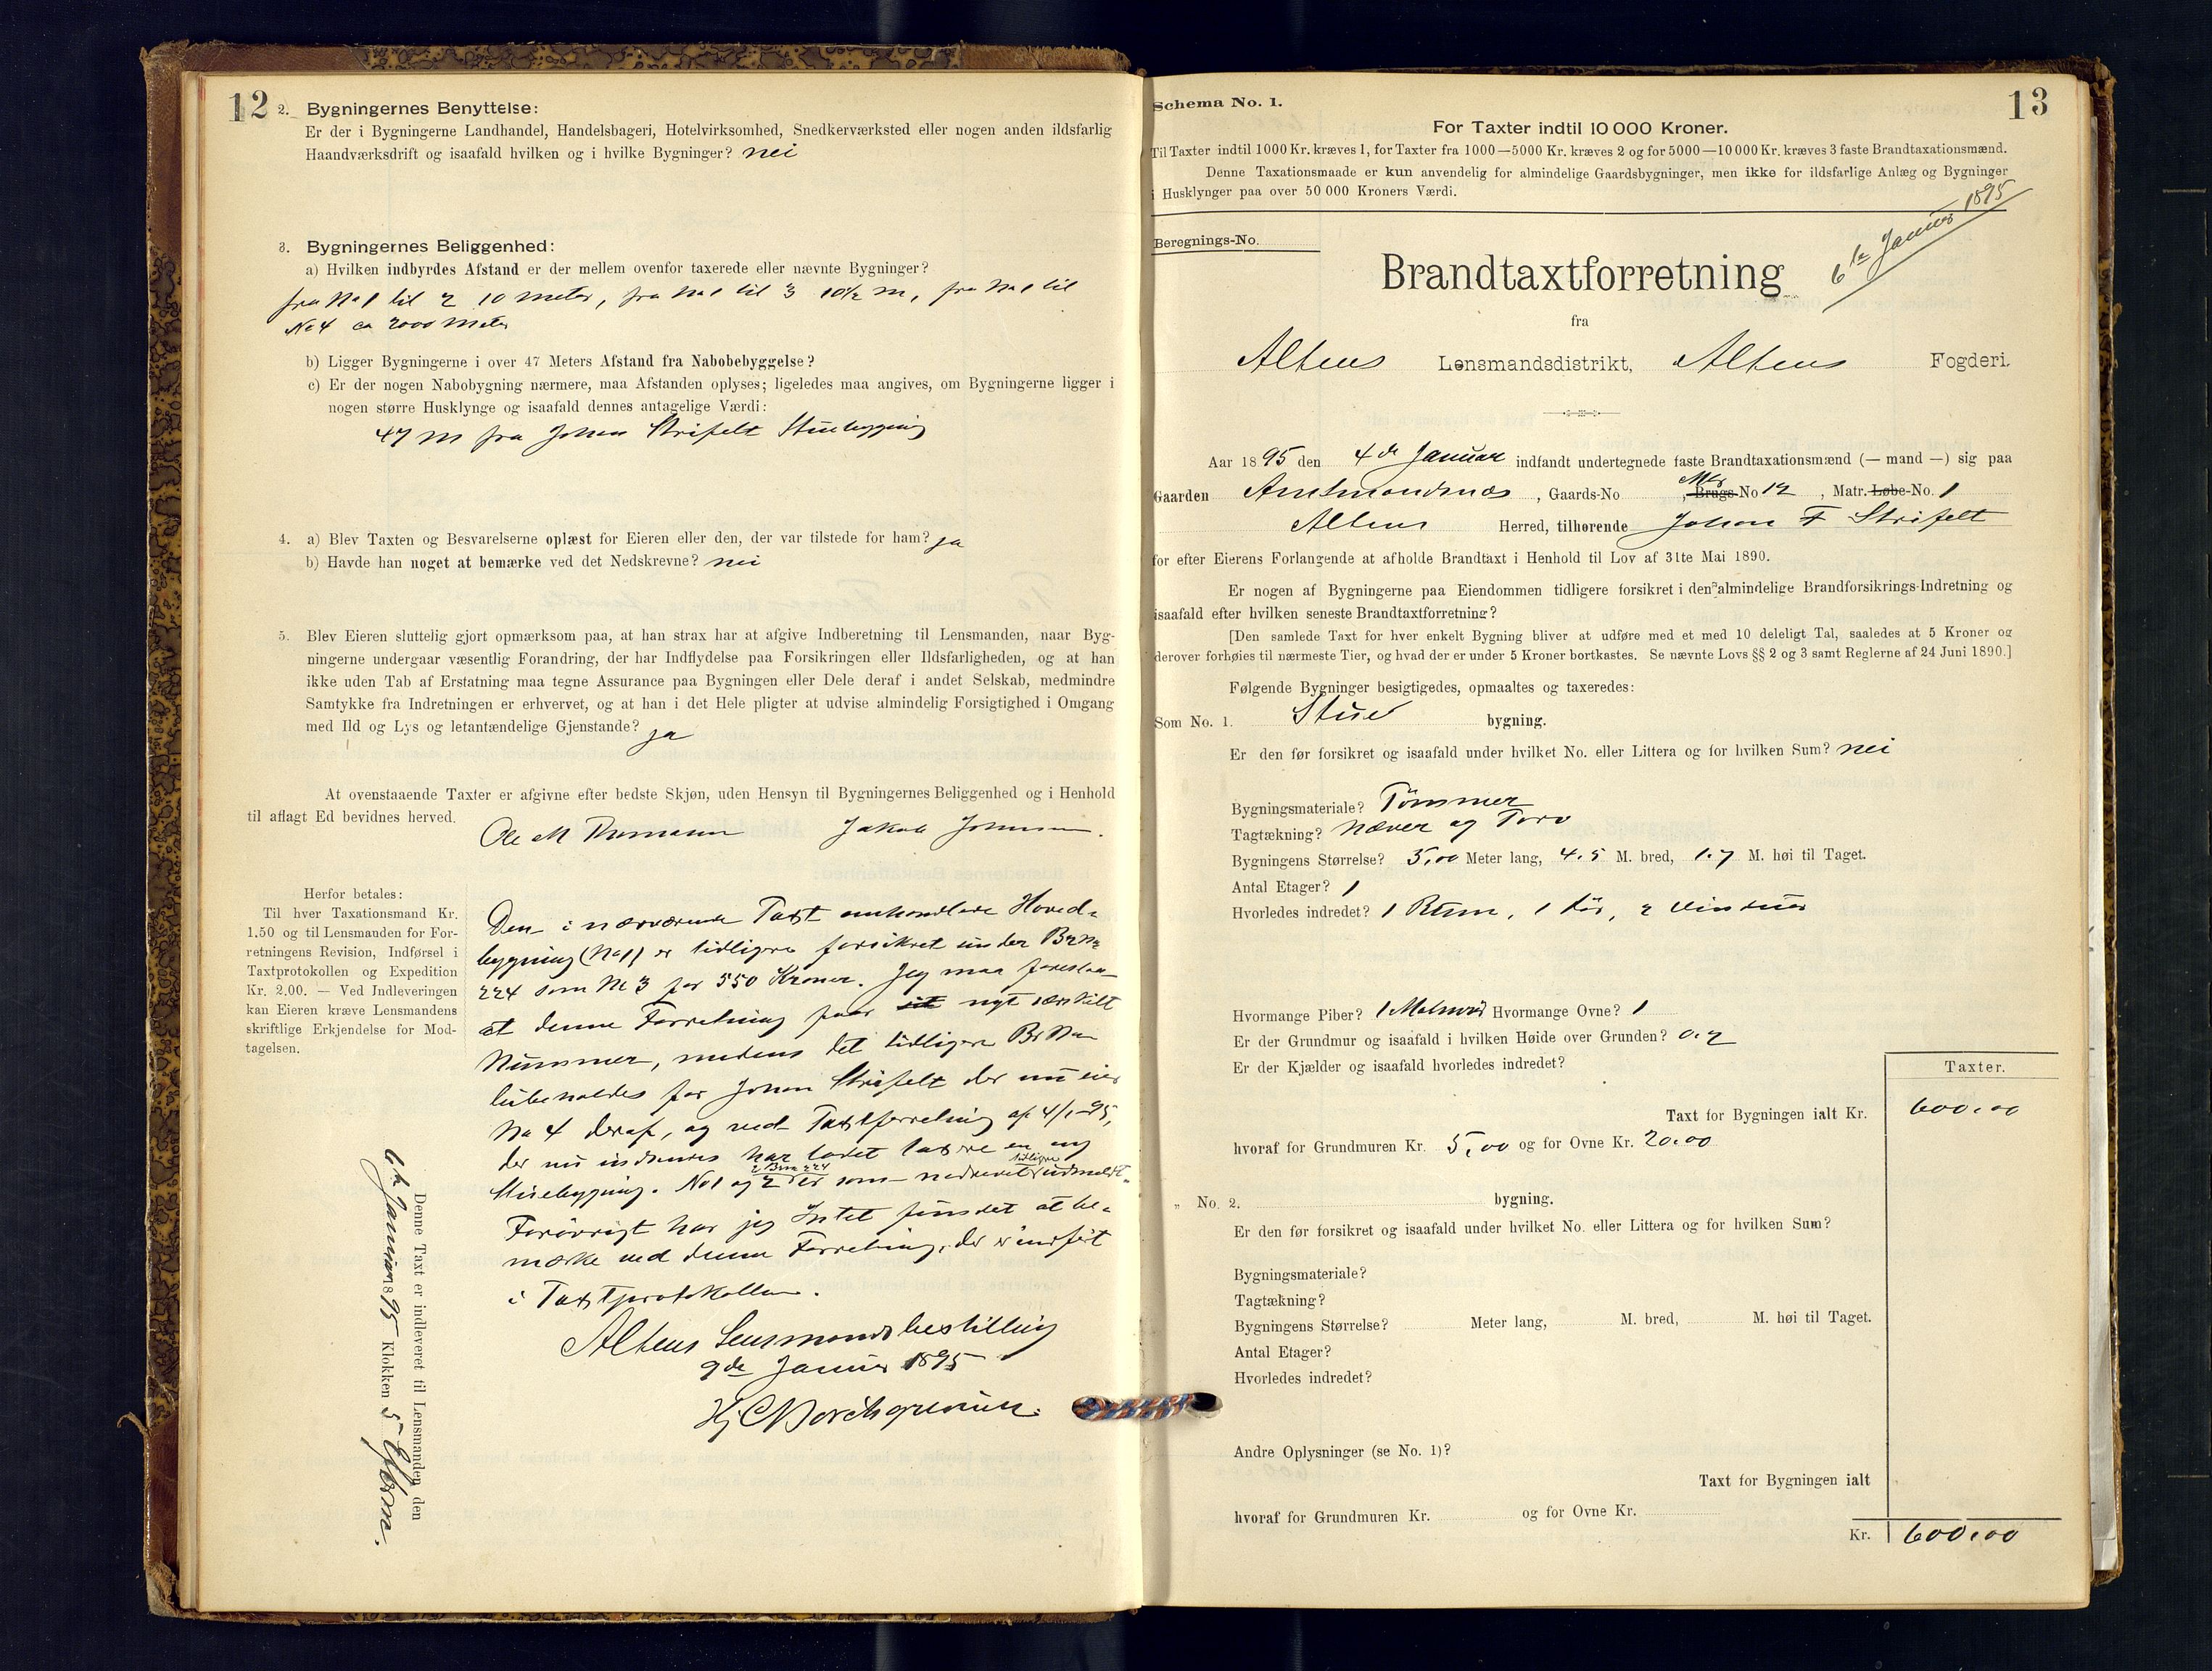 12
2. Bygningernes Benyttelse:
Er der i Bygningerne Landhandel, Handelsbageri, Hotelvirksomhed, Snedkerværksted eller nogen anden ildsfarlig
Haandværksdrift og isaafald hvilken og i hvilke Bygninger? nei
3. Bygningernes Beliggenhed:
a) Hvilken indbyrdes Afstand er der mellem ovenfor taxerede eller nævnte Bygninger?
fra No 1 til 2 10 meter, fra No 1 til 3 10½ m, fra No 1 til
No 4 ca 2000 meter
b) Ligger Bygningerne i over 47 Meters Afstand fra Nabobebyggelse?
c) Er der nogen Nabobygning nærmere, maa Afstanden oplyses; ligeledes maa angives, om Bygningerne ligger i
nogen større Husklynge og isaafald dennes antagelige Værdi:
47 m fra Johan Strifelt Stuebygning
4. a) Blev Taxten og Besvarelserne oplæst for Eieren eller den, der var tilstede for ham? ja
b) Havde han noget at bemærke ved det Nedskrevne? nei
5. Blev Eieren sluttelig gjort opmærksom paa, at han strax har at afgive Indberetning til Lensmanden, naar Byg-
ningerne undergaar væsentlig Forandring, der har Indflydelse paa Forsikringen eller Ildsfarligheden, og at han
ikke uden Tab af Erstatning maa tegne Assurance paa Bygningen eller Dele deraf i andet Selskab, medmindre
Samtykke fra Indretningen er erhvervet, og at han i det Hele pligter at udvise almindelig Forsigtighed i Omgang
med Ild og Lys og letantændelige Gjenstande? ja
At ovenstaaende Taxter er afgivne efter bedste Skjøn, uden Hensyn til Bygningernes Beliggenhed og i Henhold
til aflagt Ed bevidnes herved.
Ole M Jakob Johnsen.
Herfor betales:
Til hver Taxationsmand Kr.
1.50 og til Lensmanden for For-
retningens Revision, Indførsel i
Taxtprotokollen og Expedition
Kr. 2.00. — Ved Indleveringen
kan Eieren kræve Lensmandens
skriftlige Erkjendelse for Mod-
tagelsen.
Den i nærværende Taxt omhandlede Hoved-
bygning (No 1) er tidligere forsikret under Br No
224 som No 3 for 550 Kroner. Jeg maa foreslaa
at denne Forretning faar nyt særskilt
Nummer, medens det tidligere Br No
bibeholdes for Johan Strifelt der nu eier
No 4 deraf, og ved Taxtforretning af 4/1-95,
der nu indsendes har ladet taxere en ny
Stuebygning. No 1 og 2 i Br no 224 er som nedrevet tidligere udmeldt.
Forøvrigt har jeg Intet fundet at be-
mærke ved denne Forretning, der er indført
i Taxtprotokollen.
Altens Lensmandsbestilling
9de Januar 1895
Hj C Borchgrevink.
Denne Taxt er indleveret til Lensmanden den
6te Januar 1895 Klokken 5 Efterm.
13
Schema No. 1.
For Taxter indtil 10 000 Kroner.
Til Taxter indtil 1000 Kr. kræves 1, for Taxter fra 1000—5000 Kr. kræves 2 og for 5000—10 000 Kr. kræves 3 faste Brandtaxationsmænd.
Denne Taxationsmaade er kun anvendelig for almindelige Gaardsbygninger, men ikke for ildsfarlige Anlæg og Bygninger
i Husklynger paa over 50 000 Kroners Værdi.
Beregnings-No.
6te Januar 1895
Brandtaxtforretning
fra
Altens Lensmandsdistrikt, Altens Fogderi.
Aar 1895 den 4de Januar indfandt undertegnede faste Brandtaxationsmænd (— mand —) sig paa
Gaarden Amtmandsnæs, Gaards-No , Brugs-No 12, Matr. Løbe-No. 1
Altens Herred, tilhørende Johan F Strifelt
for efter Eierens Forlangende at afholde Brandtaxt i Henhold til Lov af 31te Mai 1890.
Er nogen af Bygningerne paa Eiendommen tidligere forsikret i den almindelige Brandforsikrings-Indretning og
isaafald efter hvilken seneste Brandtaxtforretning?
[Den samlede Taxt for hver enkelt Bygning bliver at udføre med et med 10 deleligt Tal, saaledes at 5 Kroner og
derover forhøies til nærmeste Tier, og hvad der er under 5 Kroner bortkastes. Se nævnte Lovs §§ 2 og 3 samt Reglerne af 24 Juni 1890.]
Følgende Bygninger besigtigedes, opmaaltes og taxeredes:
Som No. 1. Stue bygning.
Er den før forsikret og isaafald under hvilket No. eller Littera og for hvilken Sum? nei
Bygningsmateriale? Tømmer
Tagtækning? Næver og Torv
Bygningens Størrelse? 5,00 Meter lang, 4.5 M. bred, 1.7 M. høi til Taget.
Antal Etager? 1
Hvorledes indredet? 1 Rum, 1 Dør, 2 Vinduer
Hvormange Piber? 1 Hvormange Ovne? 1
Er der Grundmur og isaafald i hvilken Høide over Grunden? 0.2
Er der Kjælder og isaafald hvorledes indredet?
Taxter.
Taxt for Bygningen ialt Kr. 600.00
hvoraf for Grundmuren Kr. 5,00 og for Ovne Kr. 20.00
" No. 2. bygning.
Er den før forsikret og isaafald under hvilket No. eller Littera og for hvilken Sum?
Bygningsmateriale?
Tagtækning?
Bygningens Størrelse? Meter lang, M. bred, M. høi til Taget.
Antal Etager?
Hvorledes indredet?
Andre Oplysninger (se No. 1)?
Taxt for Bygningen ialt
hvoraf for Grundmuren Kr. og for Ovne Kr.
Kr. 600.00